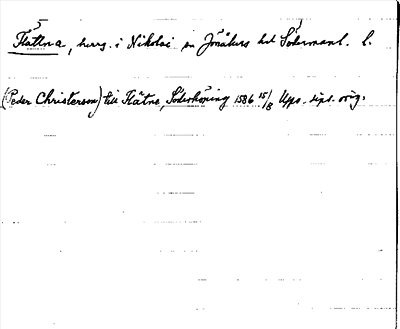 Flättna, herrg. i Nikolai sn Jönåkers hd Södermanl. l.
(Peder Christerson) till Flätne, Söderköping 1586 15/8 Ups. dipl. orig.